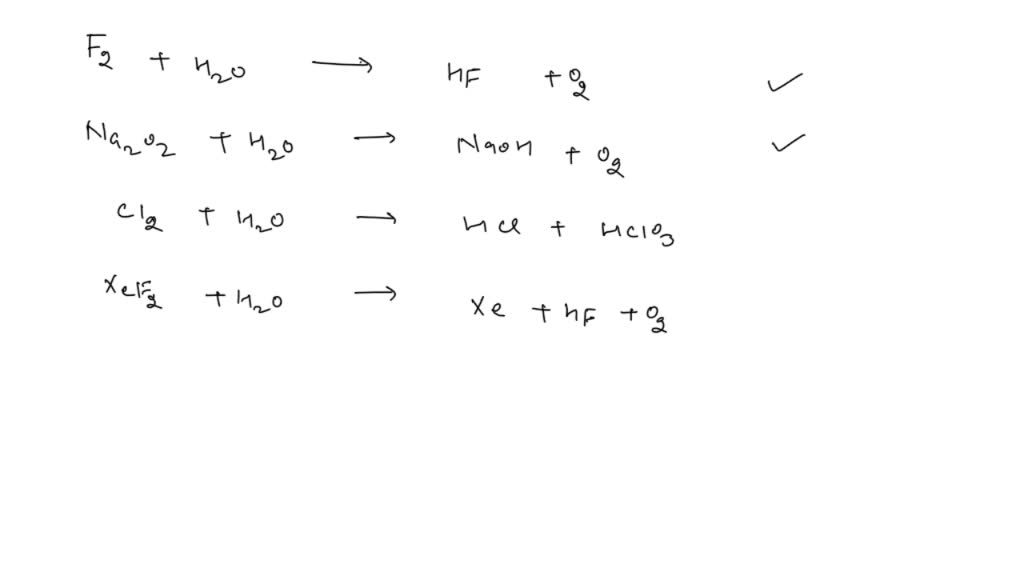 F₂ + H₂O → HF + O₂ ✓
Na₂O₂ + H₂O → NaOH + O₂ ✓
Cl₂ + H₂O → HCl + HClO₃
XeF₂ + H₂O → Xe + HF + O₂